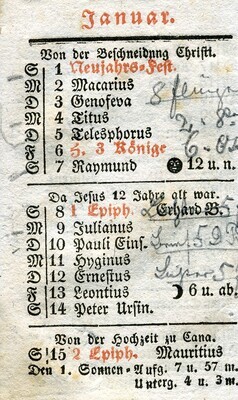 Januar.
Von der Beschneidung Christi.
S 1 Neujahrs-Fest.
M 2 Macarius
D 3 Genofeva
M 4 Titus
D 5 Telesphorus
F 6 H. 3 Könige
S 7 Raymund 12 u. n.
Da Jesus 12 Jahre alt war.
S 8 1 Epiph. Erhard B.
M 9 Julianus
D 10 Pauli Eins.
M 11 Hyginus
D 12 Ernestus
F 13 Leontius 6 u. ab.
S 14 Peter Ursin.
Von der Hochzeit zu Cana.
S 15 2 Epiph. Mauritius
Den 1. Sonnen-Aufg. 7 u. 57 m.
Unterg. 4 u. 3 m.